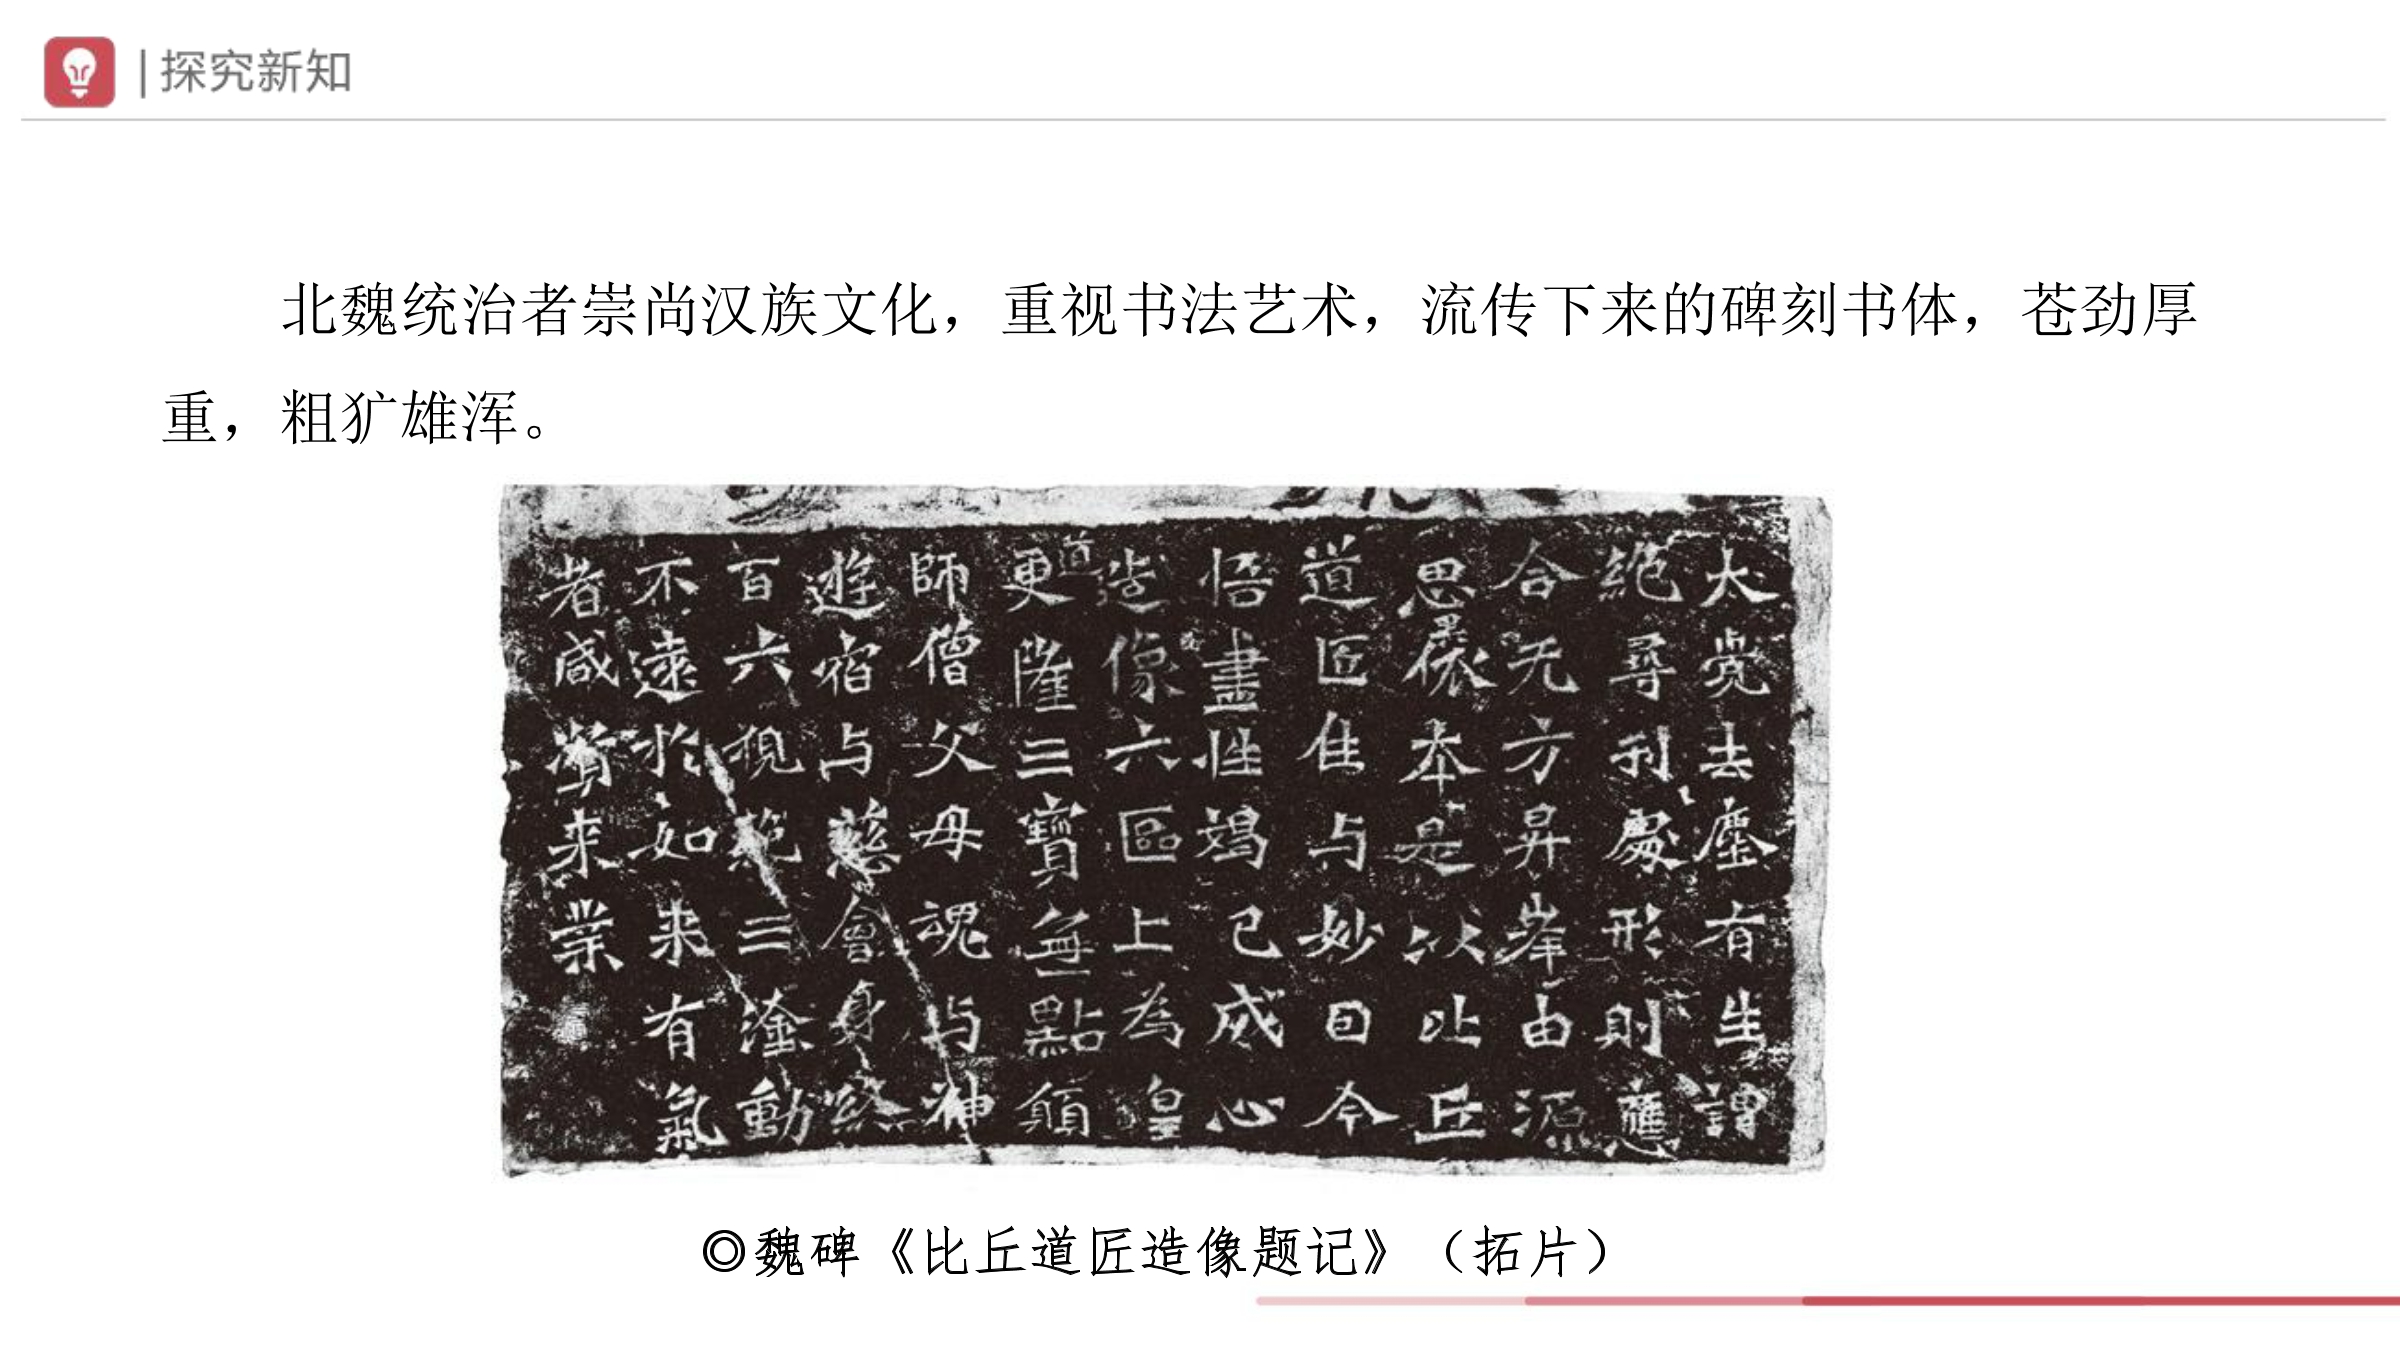 探究新知
北魏统治者崇尚汉族文化，重视书法艺术，流传下来的碑刻书体，苍劲厚
重，粗犷雄浑。
太覺去塵有生謂
絶尋刊處形則應
合无方昇峯由源
思依本是以比丘
道匠住与妙日今
悟盡性竭已成心
造像六區上為皇
更隆三寶無點願
師僧父母魂与神
遊宿与慈會身終
百六視絶三塗動
不遠於如来有氣
者咸資来業
◎魏碑《比丘道匠造像题记》（拓片）